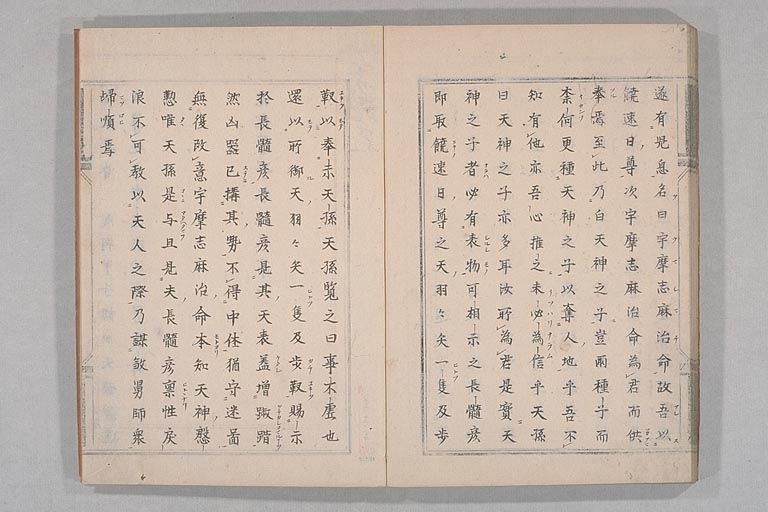 遂有児息名曰宇摩志麻治命故吾以
饒速日尊次宇摩志麻治命為君而供
奉焉至此乃白天神之子豈両種子而
柰何更種天神之子以奪人地乎吾不
知有他亦吾心推之未必為信乎天孫
曰天神之子亦多耳汝所為君是實天
神之子者必有表物可相示之長髓彦
即取饒速日尊之天羽々矢一隻及歩
靫以奉示天孫天孫覧之曰事不虚也
還以所御天羽々矢一隻及歩靫賜示
於長髓彦長髓彦是其天表盖増踧踖
然凶器已搆其勢不得中休猶守迷啚
無復改意宇摩志麻治命本知天神慇
懃唯天孫是与且是夫長髓彦禀性戻
浪不可教以天人之際乃謀敓舅師衆
歸順焉